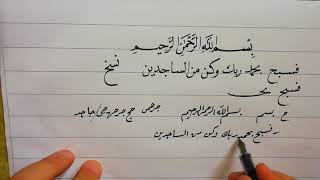 بِسْمِ اللَّهِ الرَّحْمَٰنِ الرَّحِيمِ
فسبح بحمد ربك وكن من الساجدين نسخ
فسبح بحـ
ح بسم بسم الله الرحمن الرحيم
فسبح بحمد ربك وكن من الساجدين